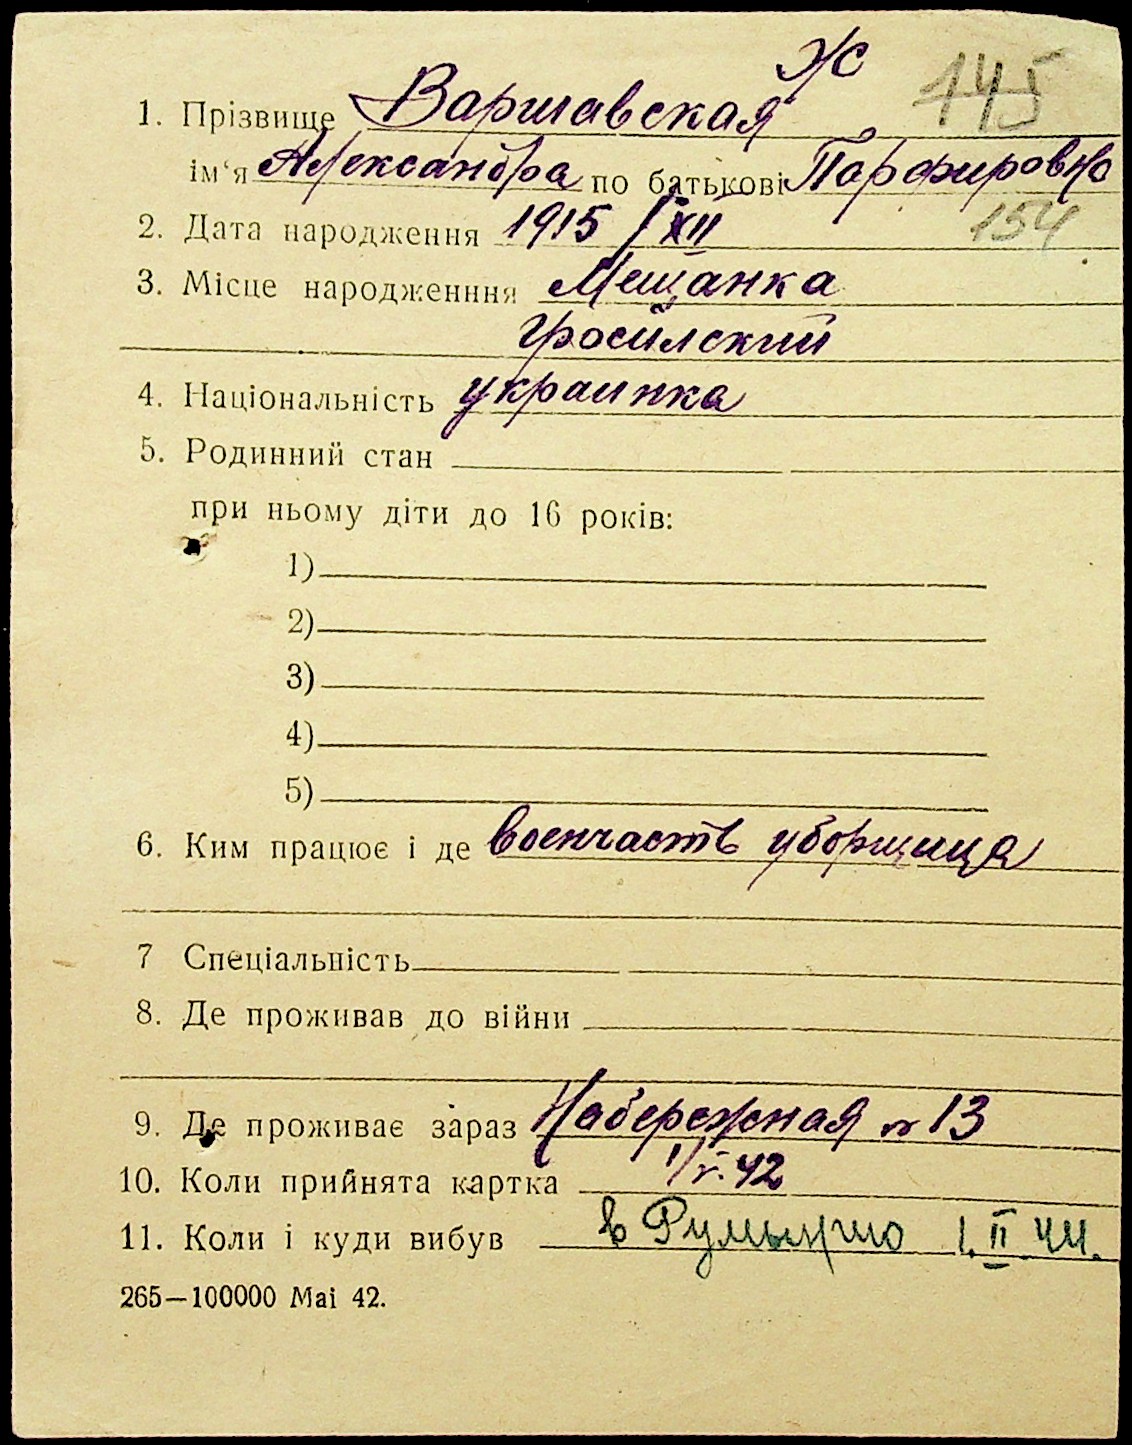 ж
145
1. Прізвище Варшавская
ім'я Александра по батькові Парфировна
154
2. Дата народження 1915 1/XII
3. Місце народженння Мещанка
4. Національність украинка
5. Родинний стан
при ньому діти до 16 років:
1)
2)
3)
4)
5)
6. Ким працює і де военчасть уборщица
7 Спеціальність
8. Де проживав до війни
9. Де проживає зараз Набережная № 13
10. Коли прийнята картка 42
11. Коли і куди вибув в Румынию 1. II 44.
265—100000 Mai 42.